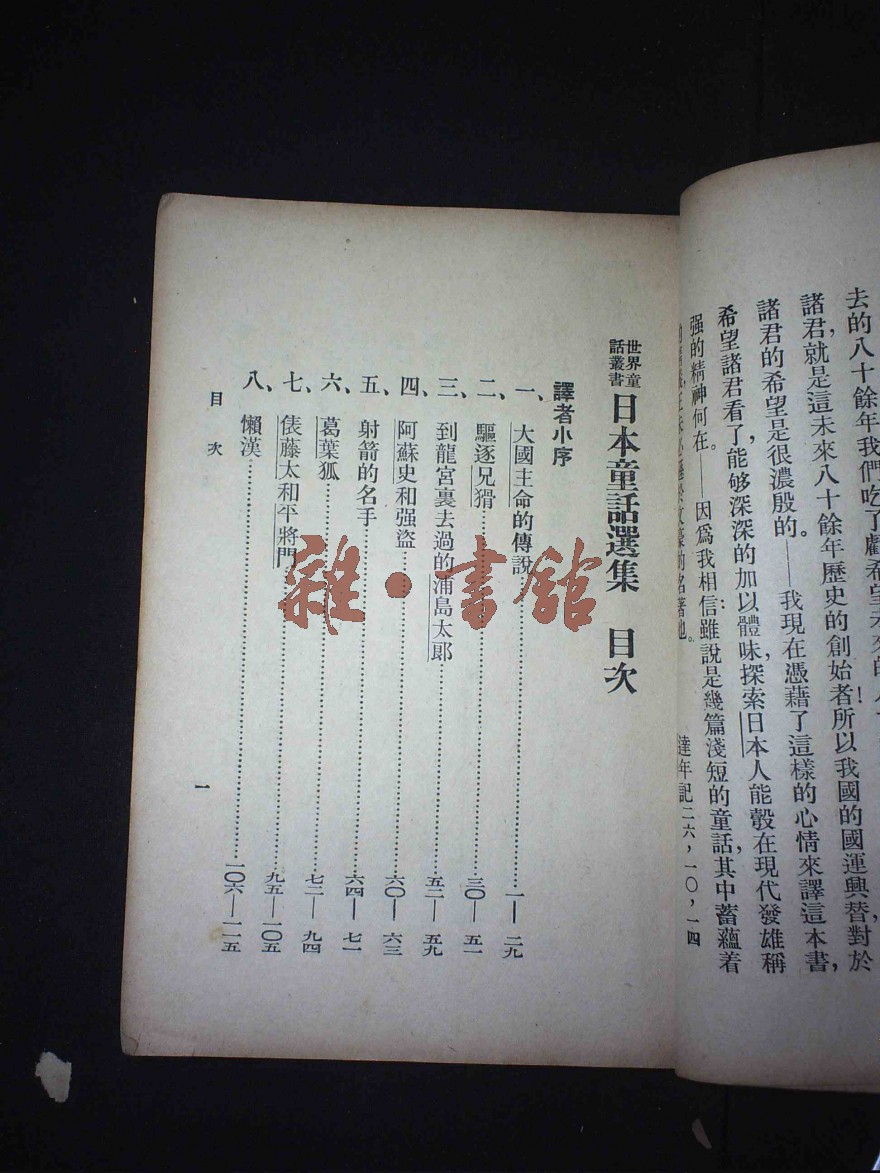 去的八十餘年我們吃了虧希望未來的
諸君，就是這未來八十餘年歷史的創始者！所以我國的國運興替對於
諸君的希望是很濃殷的。——我現在憑藉了這樣的心情來譯這本書，
希望諸君看了，能够深深的加以體味，探索日本人能彀在現代發雄稱
强的精神何在。——因爲我相信：雖說是幾篇淺短的童話，其中蓄蘊着
的名著也。
達年記二六，一〇，一四
世界童話叢書
日本童話選集　目次
譯者小序
一、大國主命的傳說……一—二九
二、驅逐兄猾……三〇—五一
三、到龍宮裏去過的浦島太郎……五二—五九
四、阿蘇史和强盜……六〇—六三
五、射箭的名手……六四—七一
六、葛葉狐……七二—九四
七、俵藤太和平將門……九五—一〇五
八、懶漢……一〇六—一一五
目次
一
雜·書館